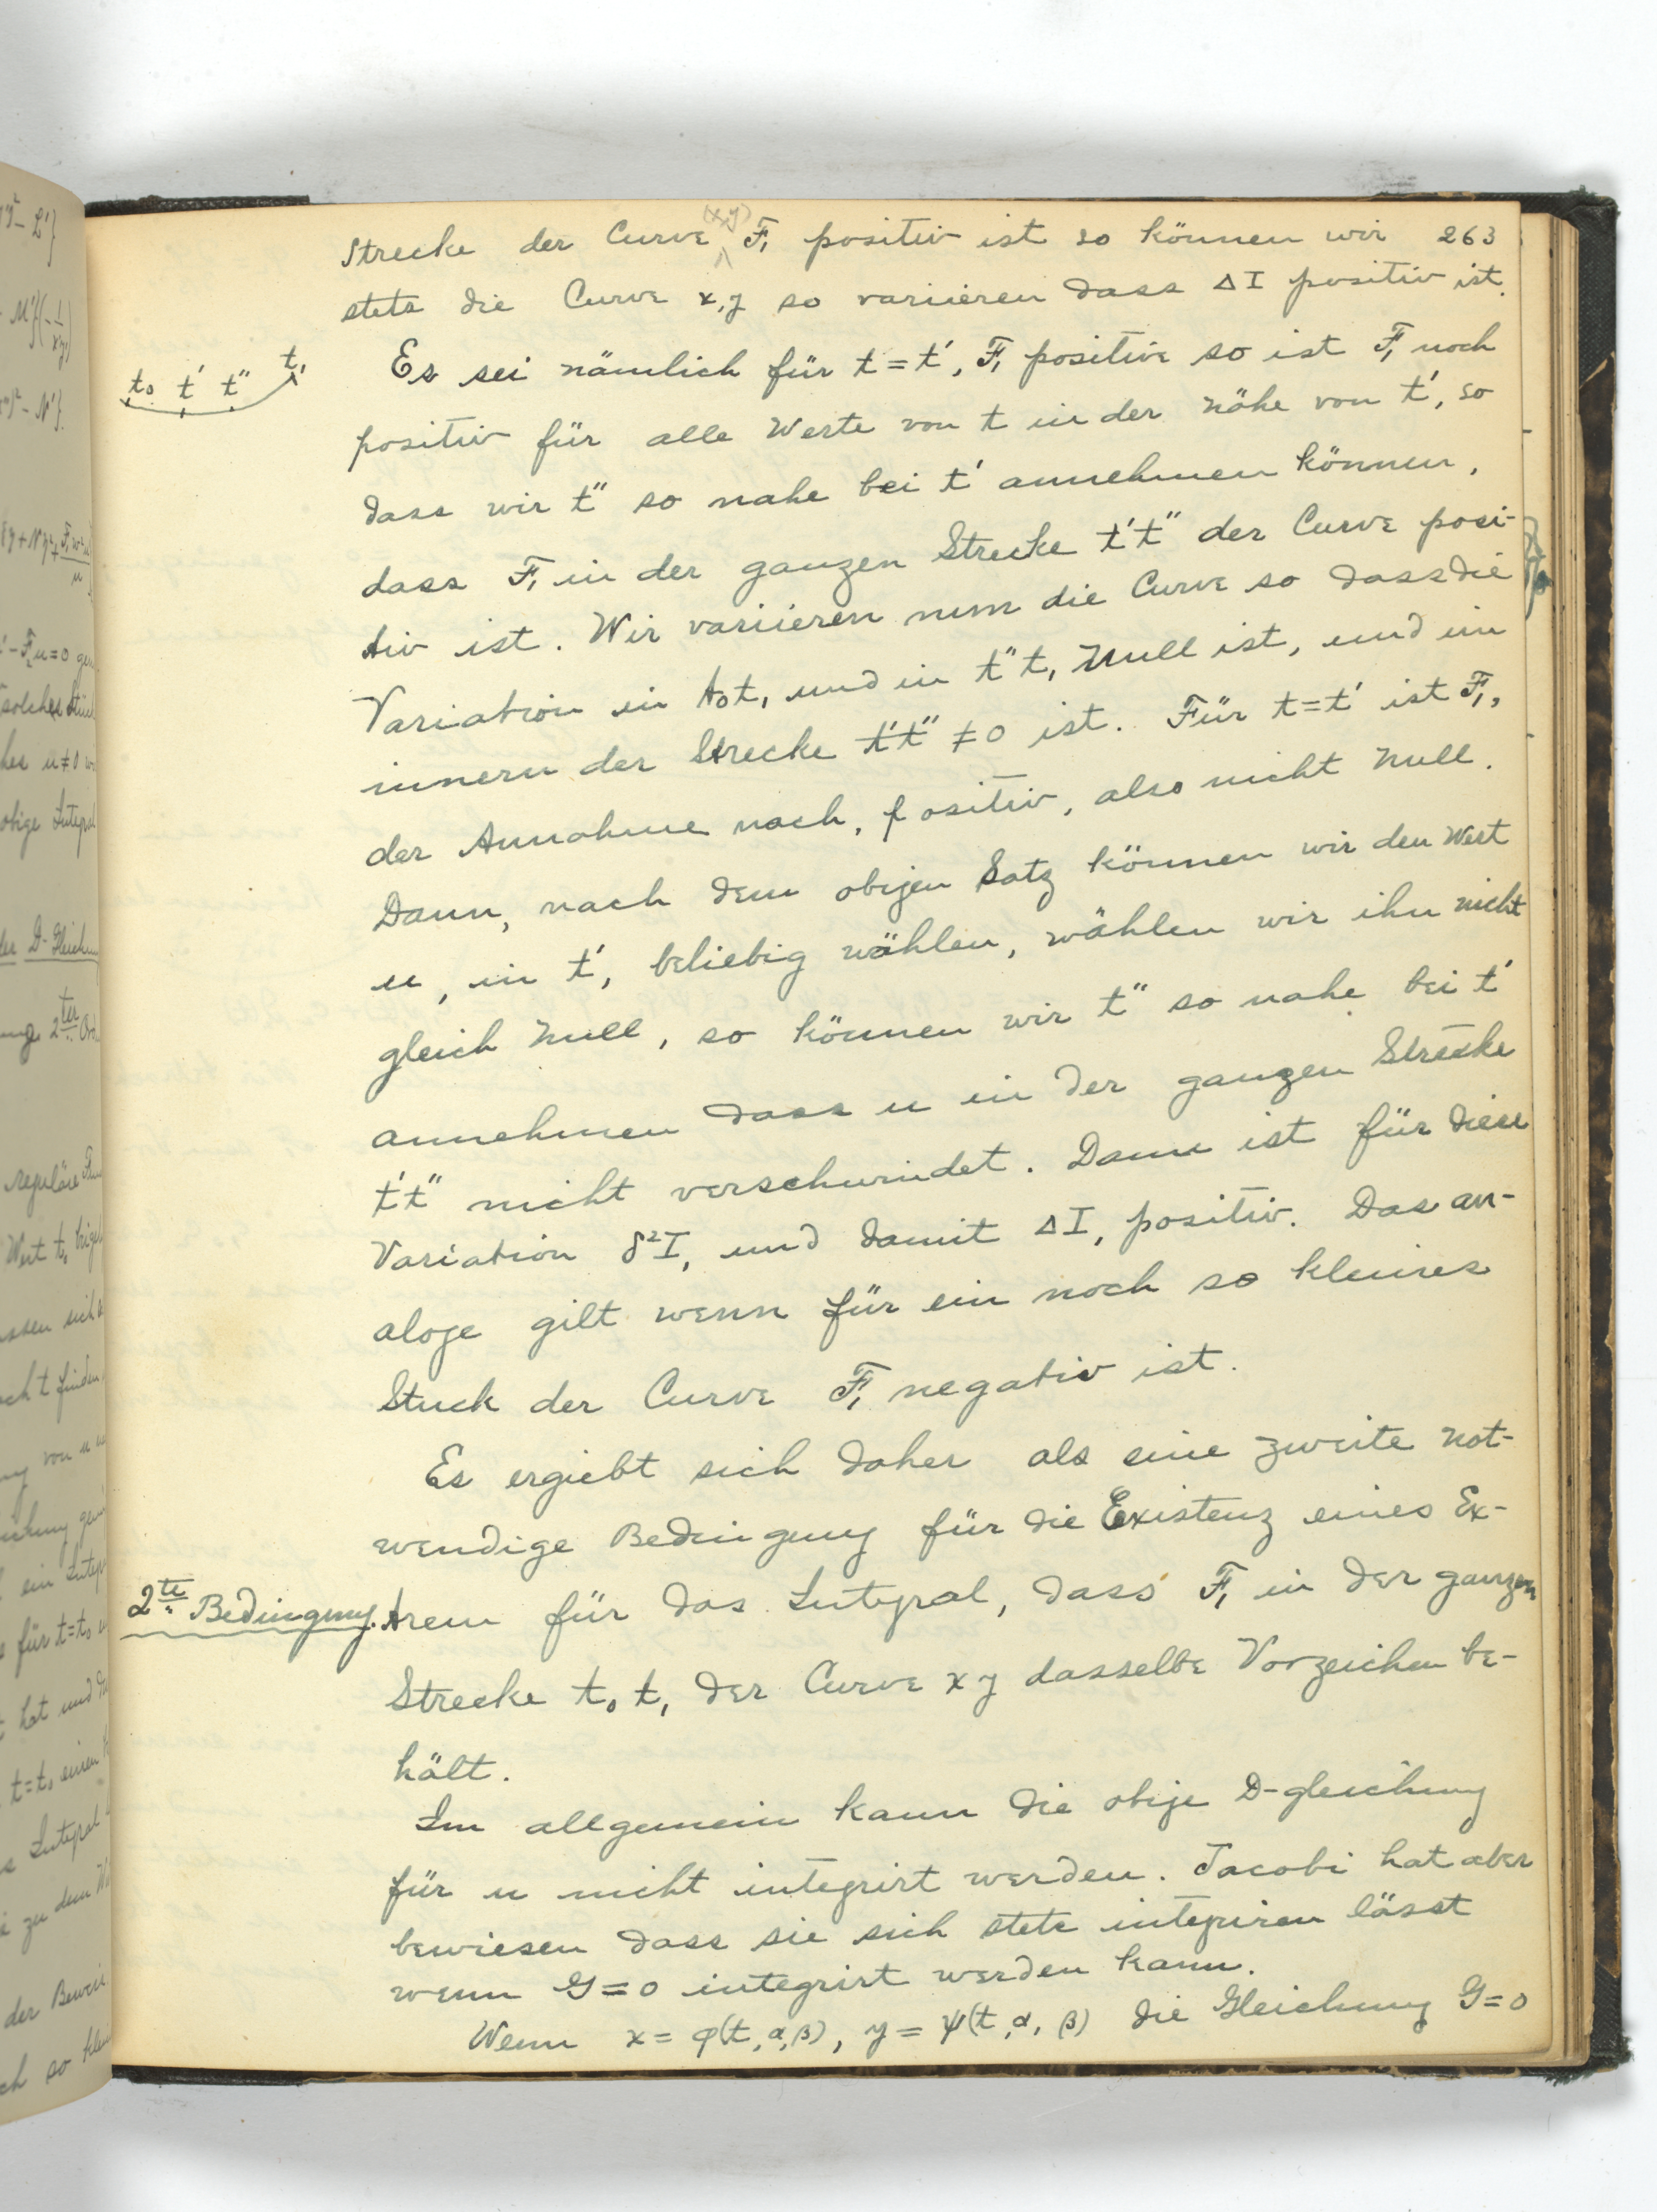 Strecke der Curve (x,y) F₁ positiv ist so können wir 263
stets die Curve x,y so variieren dass ΔI positiv ist.
t₀ t' t" t₁
Es sei nämlich für t = t', F₁ positive so ist F₁ noch
positiv für alle Werte von t in der Nähe von t', so
dass wir t" so nahe bei t' annehmen können,
dass F₁ in der ganzen Strecke t't" der Curve posi-
tiv ist. Wir variieren nun die Curve so dass die
Variation in t₀t, und in t"t₁ Null ist, und im
innern der Strecke t't" ≠ 0 ist. Für t = t' ist F₁,
der Annahme nach, positiv, also nicht Null.
Dann, nach dem obigen Satz können wir den Wert
u, in t', beliebig wählen, wählen wir ihn nicht
gleich Null, so können wir t" so nahe bei t'
annehmen dass u in der ganzen Strecke
t't" nicht verschwindet. Dann ist für diese
Variation δ²I, und damit ΔI, positiv. Das an-
aloge gilt wenn für ein noch so kleines
Stuck der Curve F₁ negativ ist.
Es ergiebt sich daher als eine zweite not-
wendige Bedingung für die Existenz eines Ex-
2te Bedingung. trem für das Integral, dass F₁ in der ganzen
Strecke t₀t₁ der Curve x y dasselbe Vorzeichen be-
hält.
Im allgemein kann die obige D-gleichung
für u nicht integrirt werden. Jacobi hat aber
bewiesen dass sie sich stets integriren lässt
wenn G = 0 integrirt werden kann.
Wenn x = φ(t, α, β), y = ψ(t, α, β) die Gleichung G = 0